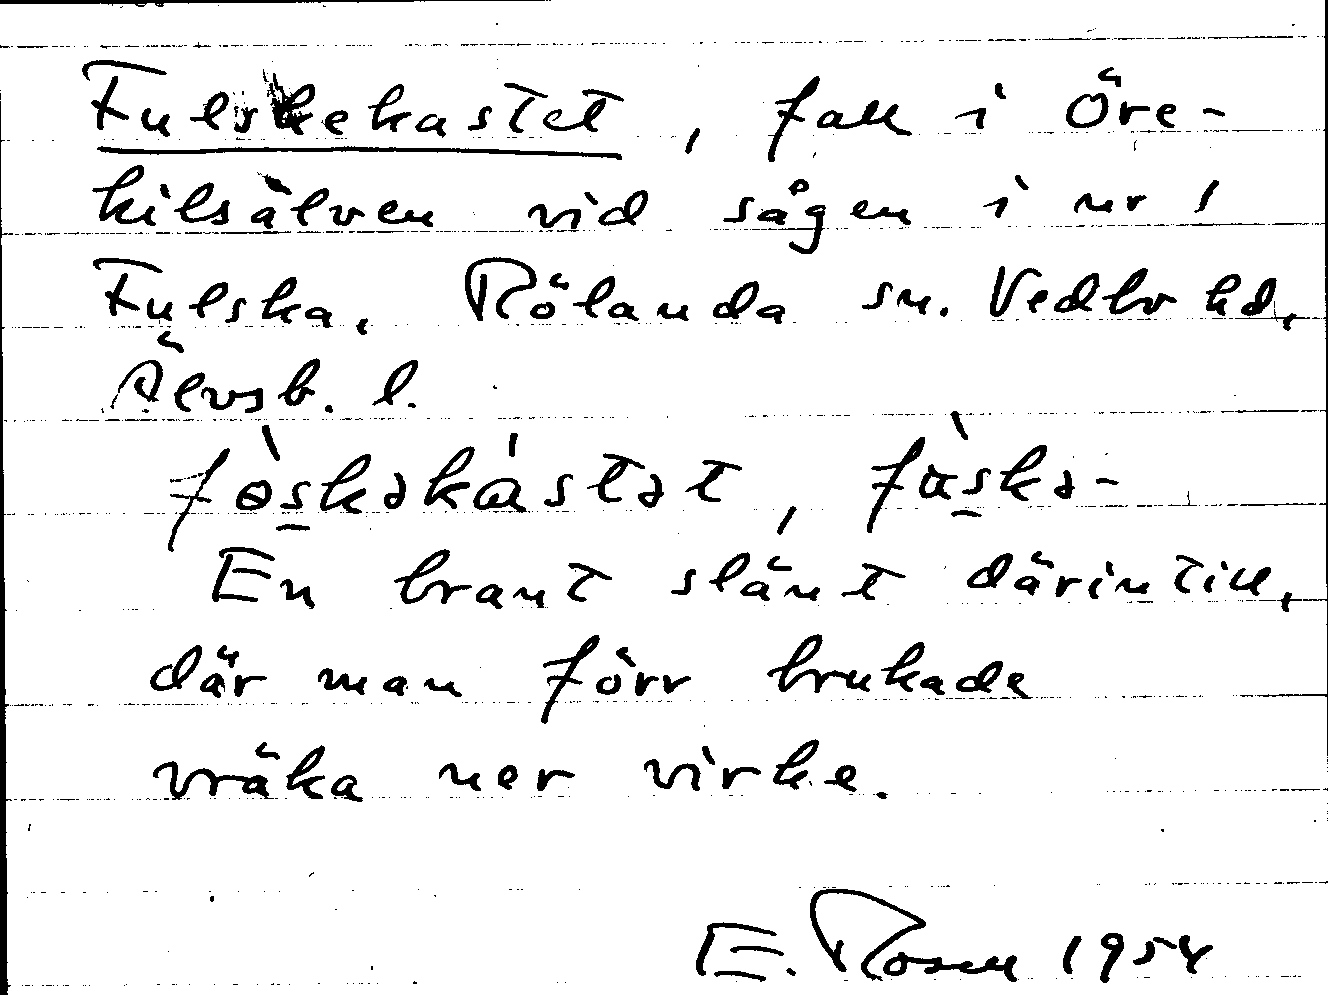 Fulskekastet, fall i Öre-
kilsälven vid sågen i nr 1
Fulska, Rölanda sn. Vedbo hd,
Älvsb. l.
fòs̱kəkástət, fàs̱kə-
En brant slänt därintill,
där man förr brukade
vräka ner virke.
E. Rosen 1954